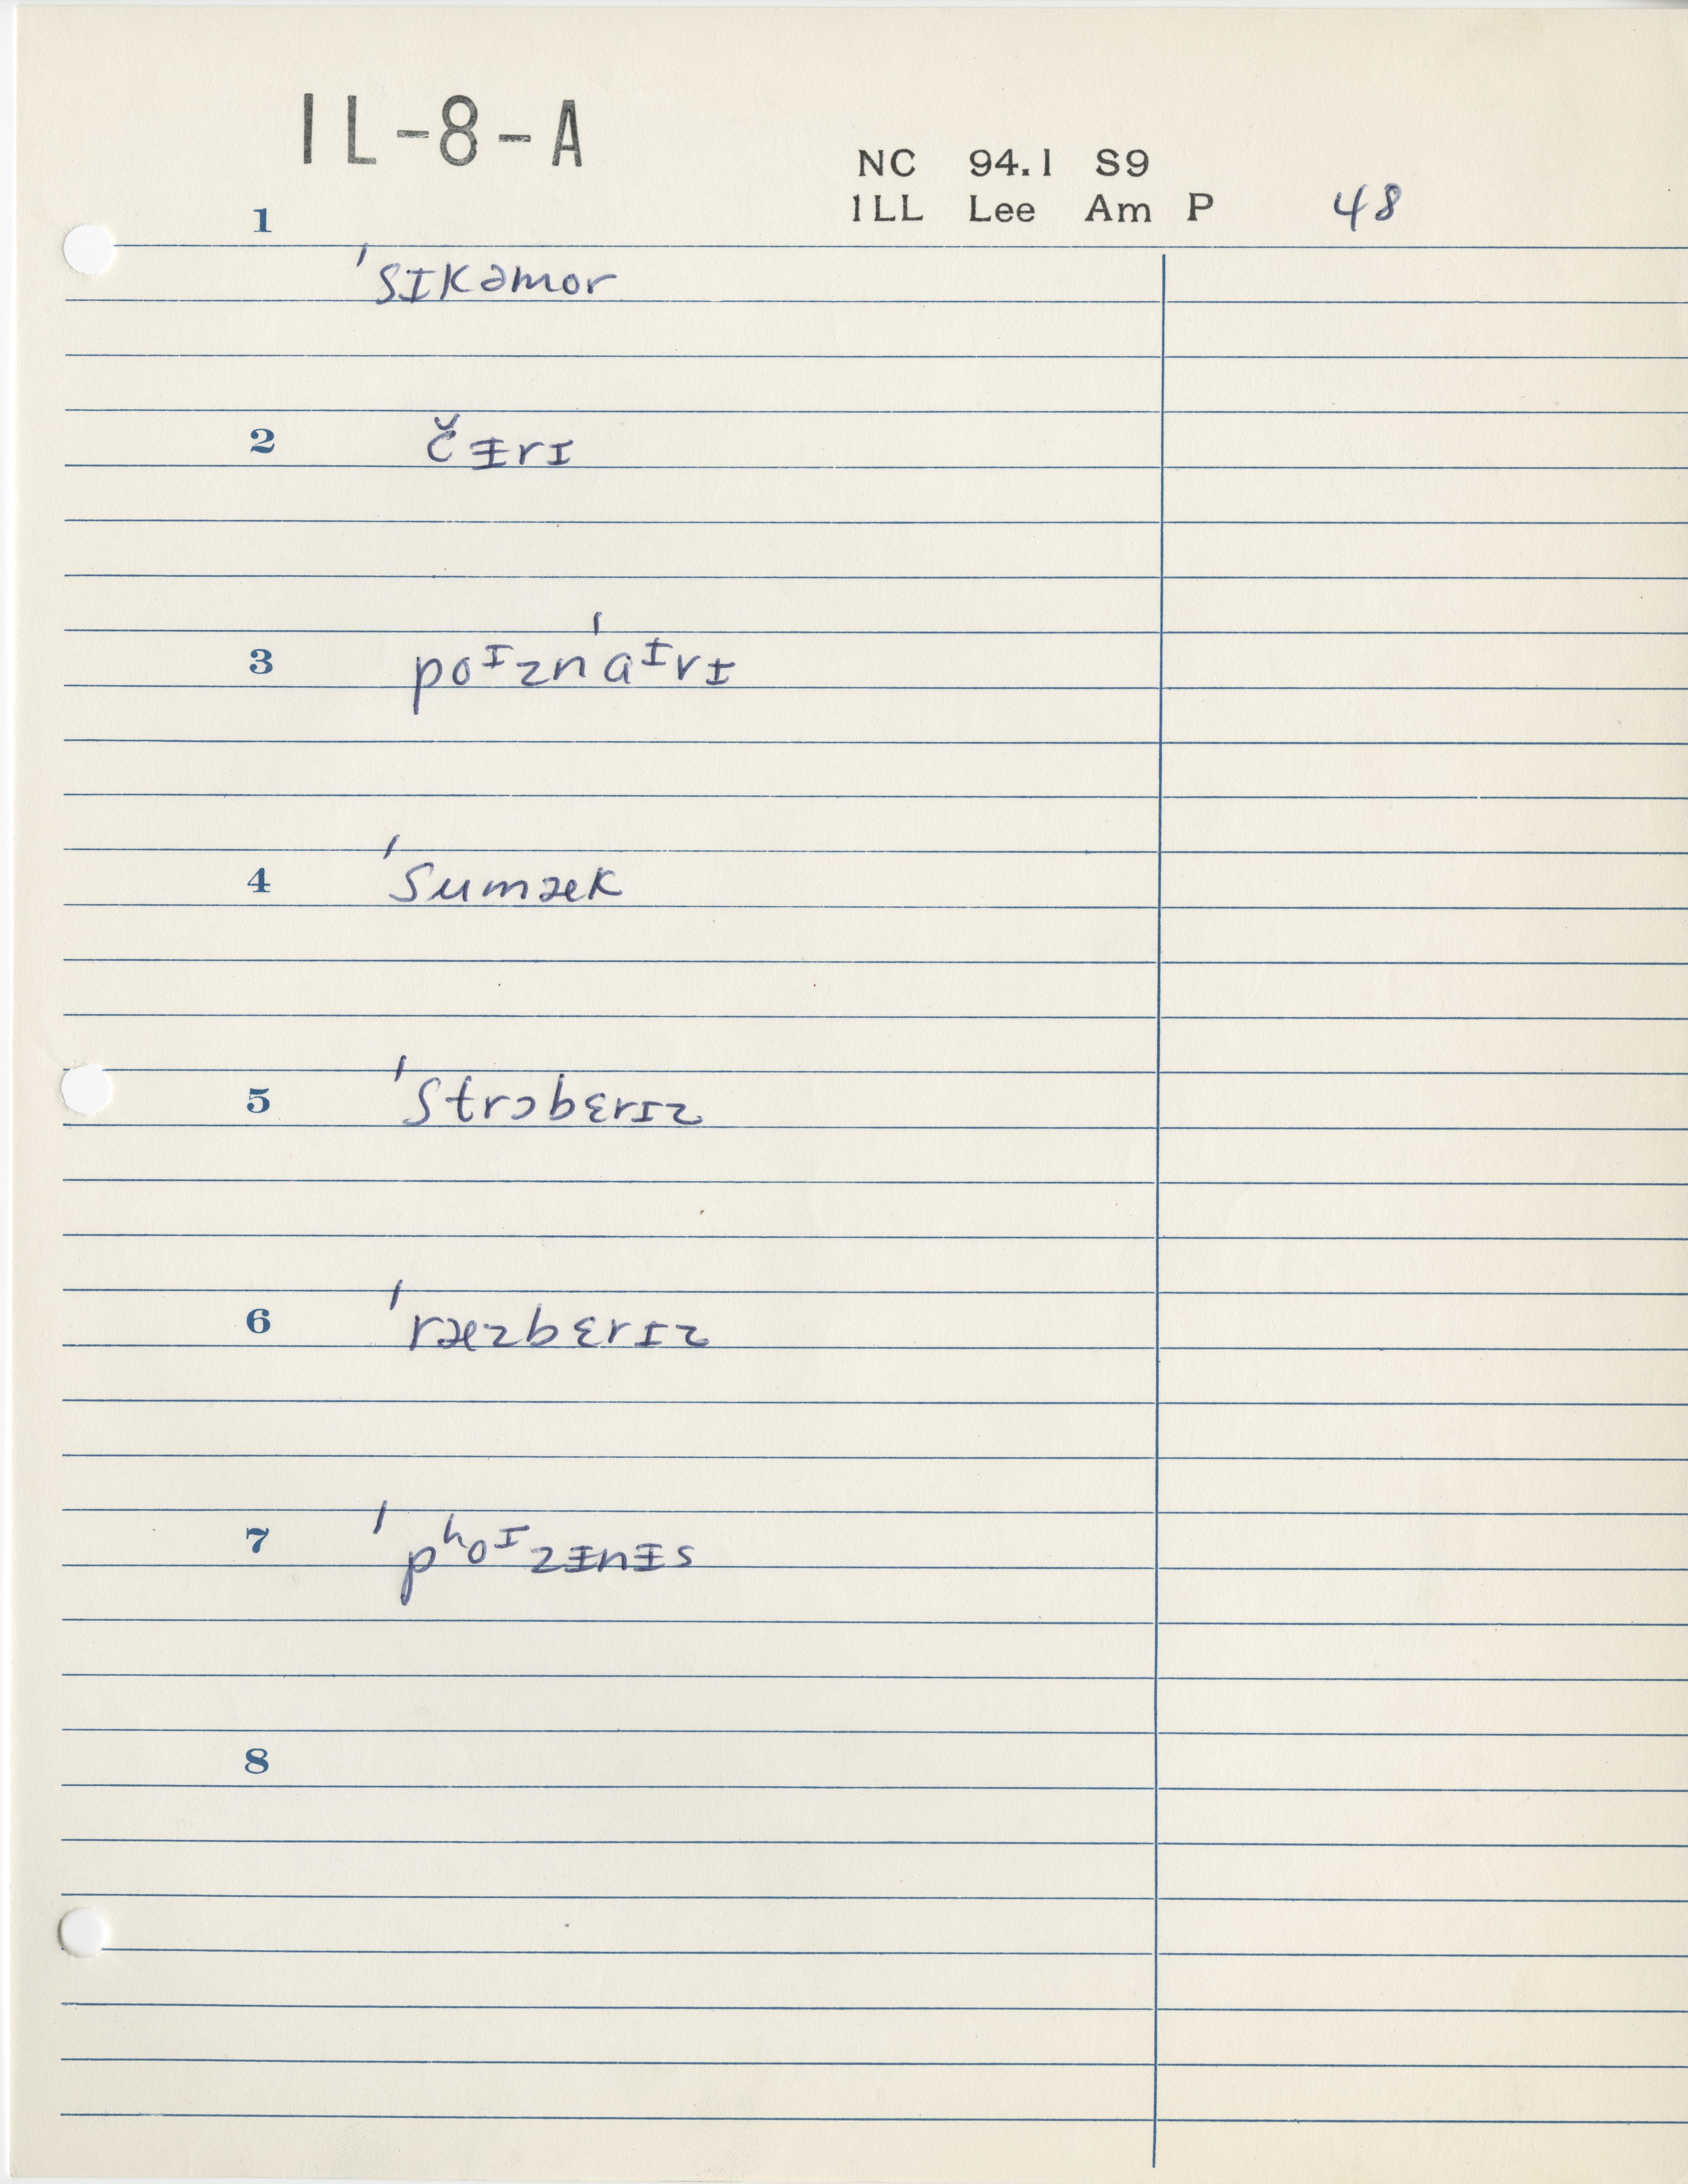 IL-8-A
NC 94.1 S9
ILL Lee Am P 48
1
ˈsɪkəmor
2
čᵻrɪ
3
poᶦznˈaᶦvɪ
4
ˈsumæk
5
ˈstrɔbɛrɪz
6
ˈræzbɛrɪz
7
ˈpʰoᶦzᵻnᵻs
8